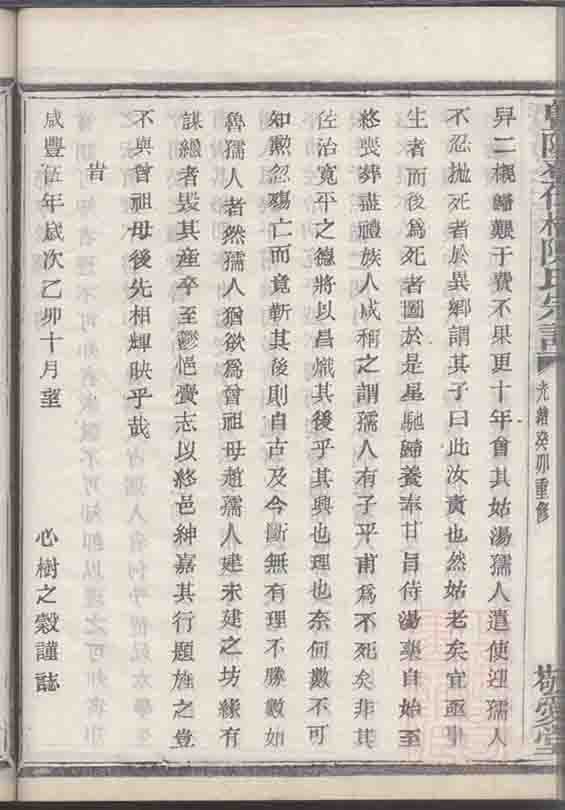 舁二櫬歸艱于費不果更十年會其姑湯孺人遣使迎孺人
不忍拋死者於異鄉謂其子曰此汝責也然姑老矣宜亟
生者而後為死者圖於是星馳歸養奉甘旨侍湯藥自始至
終喪葬盡禮族人咸稱之謂孺人有子平甫為不死矣非其
佐治寬平之德將以昌熾其後乎其興也理也奈何數不可
知勲忽殤亡而竟斬其後則自古及今斷無有理不勝數如
魯孺人者然孺人猶欲為曾祖母趙孺人建未建之坊緣有
謀繼者毀其產卒至鬱悒賫志以終邑紳嘉其行題旌之豈
不與曾祖母後先相輝映乎哉
旹
咸豐伍年歲次乙卯十月望
心樹之穀謹誌
陳氏宗譜
光緒癸卯重修
敬愛堂